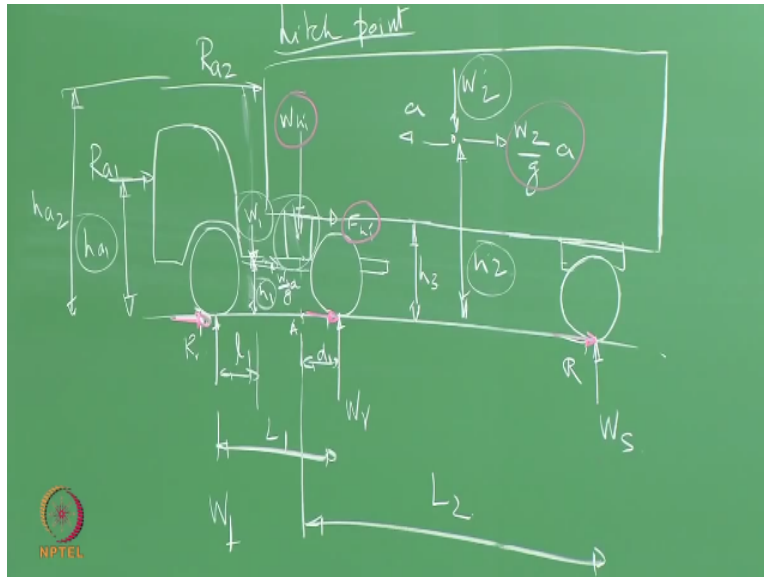 hitch point
Ra2
Whi
W2
a
W2/g a
Ra1
ha2
ha1
W1
Fhi
h1
W/g a
h3
h2
R
A
l1
d1
Wr
R
Ws
L1
L2
Wf
NPTEL